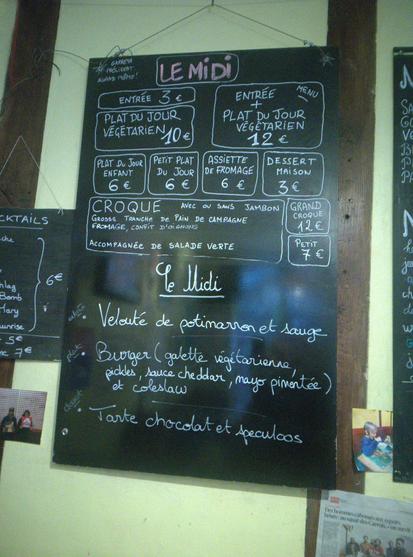 LE MIDI
ENTRÉE 3€
PLAT DU JOUR
VÉGÉTARIEN 10€
ENTRÉE
+
PLAT DU JOUR
VÉGÉTARIEN
12€
MENU
PLAT DU JOUR
ENFANT
6€
PETIT PLAT
DU JOUR
6€
ASSIETTE
DE FROMAGE
6€
DESSERT
MAISON
3€
CROQUE AVEC OU SANS JAMBON
GROSSE TRANCHE DE PAIN DE CAMPAGNE
FROMAGE, CONFIT D'OIGNONS
ACCOMPAGNÉE DE SALADE VERTE
GRAND
CROQUE
12€
PETIT
7€
Le Midi
Velouté de potimarron et sauge
plat
Burger (galette végétarienne,
pickles, sauce cheddar, mayo pimentée)
et coleslaw
dessert
Tarte chocolat et speculoos
CKTAILS
6€
Bomb
Mary
unrise
5€
7€